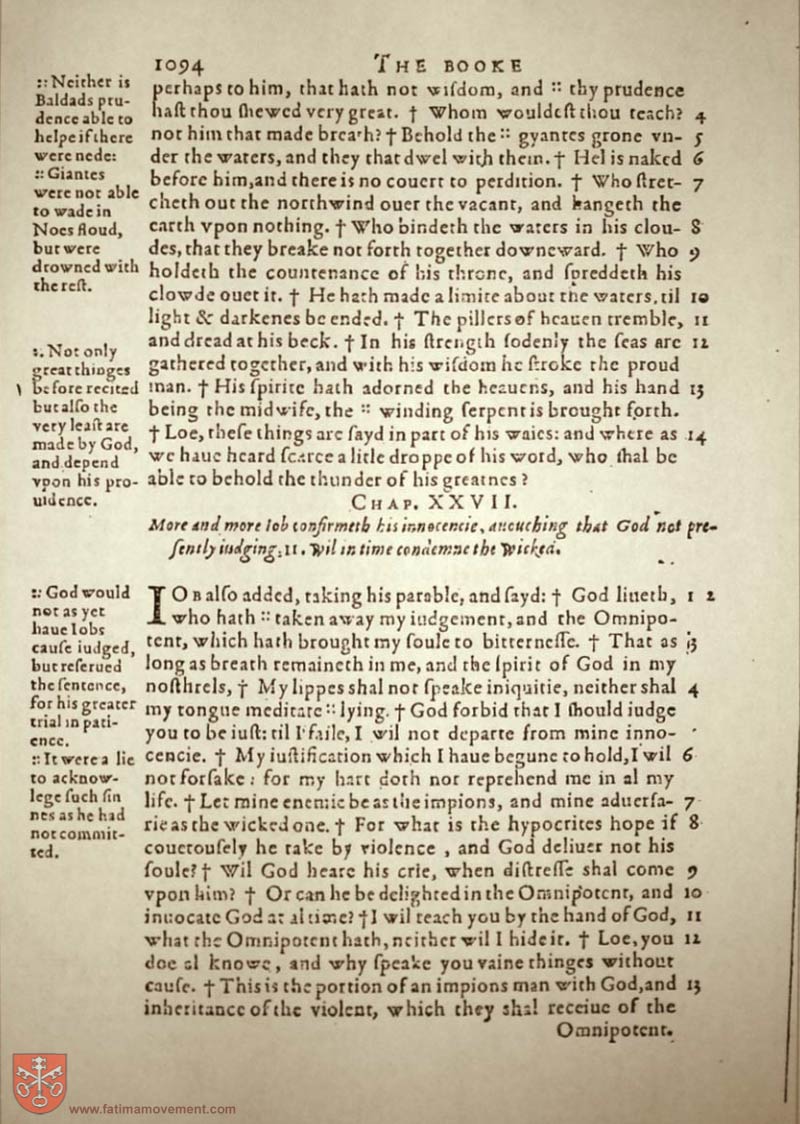 1094 THE BOOKE
:: Neither is
Baldads pru-
dence able to
helpe if there
were nede:
:: Giantes
were not able
to wade in
Noes floud,
but were
drowned with
the rest.
:. Not only
great thinges
before recited
but also the
very least are
made by God,
and depend
vpon his pro-
uidence.
perhaps to him, that hath not wisdom, and :: thy prudence
hast thou shewed very great. † Whom wouldest thou teach? 4
not him that made breath? † Behold the :: gyantes grone vn- 5
der the waters, and they that dwel with them. † Hel is naked 6
before him, and there is no couert to perdition. † Who stret- 7
cheth out the northwind ouer the vacant, and hangeth the
earth vpon nothing. † Who bindeth the waters in his clou- 8
des, that they breake not forth together downeward. † Who 9
holdeth the countenance of his throne, and spreddeth his
clowde ouer it. † He hath made a limite about the waters, til 10
light & darkenes be ended. † The pillers of heauen tremble, 11
and dread at his beck. † In his strength sodenly the seas are 12
gathered together, and with his wisdom he stroke the proud
man. † His spirite hath adorned the heauens, and his hand 13
being the midwife, the :: winding serpent is brought forth.
† Loe, these things are sayd in part of his waies: and where as 14
we haue heard scarce a litle droppe of his word, who shal be
able to behold the thunder of his greatnes?
CHAP. XXVII.
More and more Iob confirmeth his innocencie, auouching that God not pre-
sently iudging, 11. Wil in time condemne the Wicked.
:: God would
not as yet
haue Iobs
cause iudged,
but reserued
the sentence,
for his greater
trial in pati-
ence.
:: It were a lie
to acknow-
lege such sin
nes as he had
not commit-
ted.
IOB also added, taking his parable, and sayd: † God liueth, 1 2
who hath :: taken away my iudgement, and the Omnipo-
tent, which hath brought my soule to bitternesse. † That as 3
long as breath remaineth in me, and the spirit of God in my
nosthrels, † My lippes shal not speake iniquitie, neither shal 4
my tongue meditate :: lying. † God forbid that I should iudge
you to be iust: til I faile, I wil not departe from mine inno-
cencie. † My iustification which I haue begune to hold, I wil 6
not forsake: for my hart doth not reprehend me in al my
life. † Let mine enemie be as the impions, and mine aduersa- 7
rie as the wicked one. † For what is the hypocrites hope if 8
couetously he take by violence, and God deliuer not his
soule? † Wil God heare his crie, when distresse shal come 9
vpon him? † Or can he be delighted in the Omnipotent, and 10
inuocate God at al time? † I wil teach you by the hand of God, 11
what the Omnipotent hath, neither wil I hide it. † Loe, you 12
doe al knowe, and why speake you vaine thinges without
cause. † This is the portion of an impions man with God, and 13
inheritance of the violent, which they shal receiue of the
Omnipotent.
www.fatimamovement.com